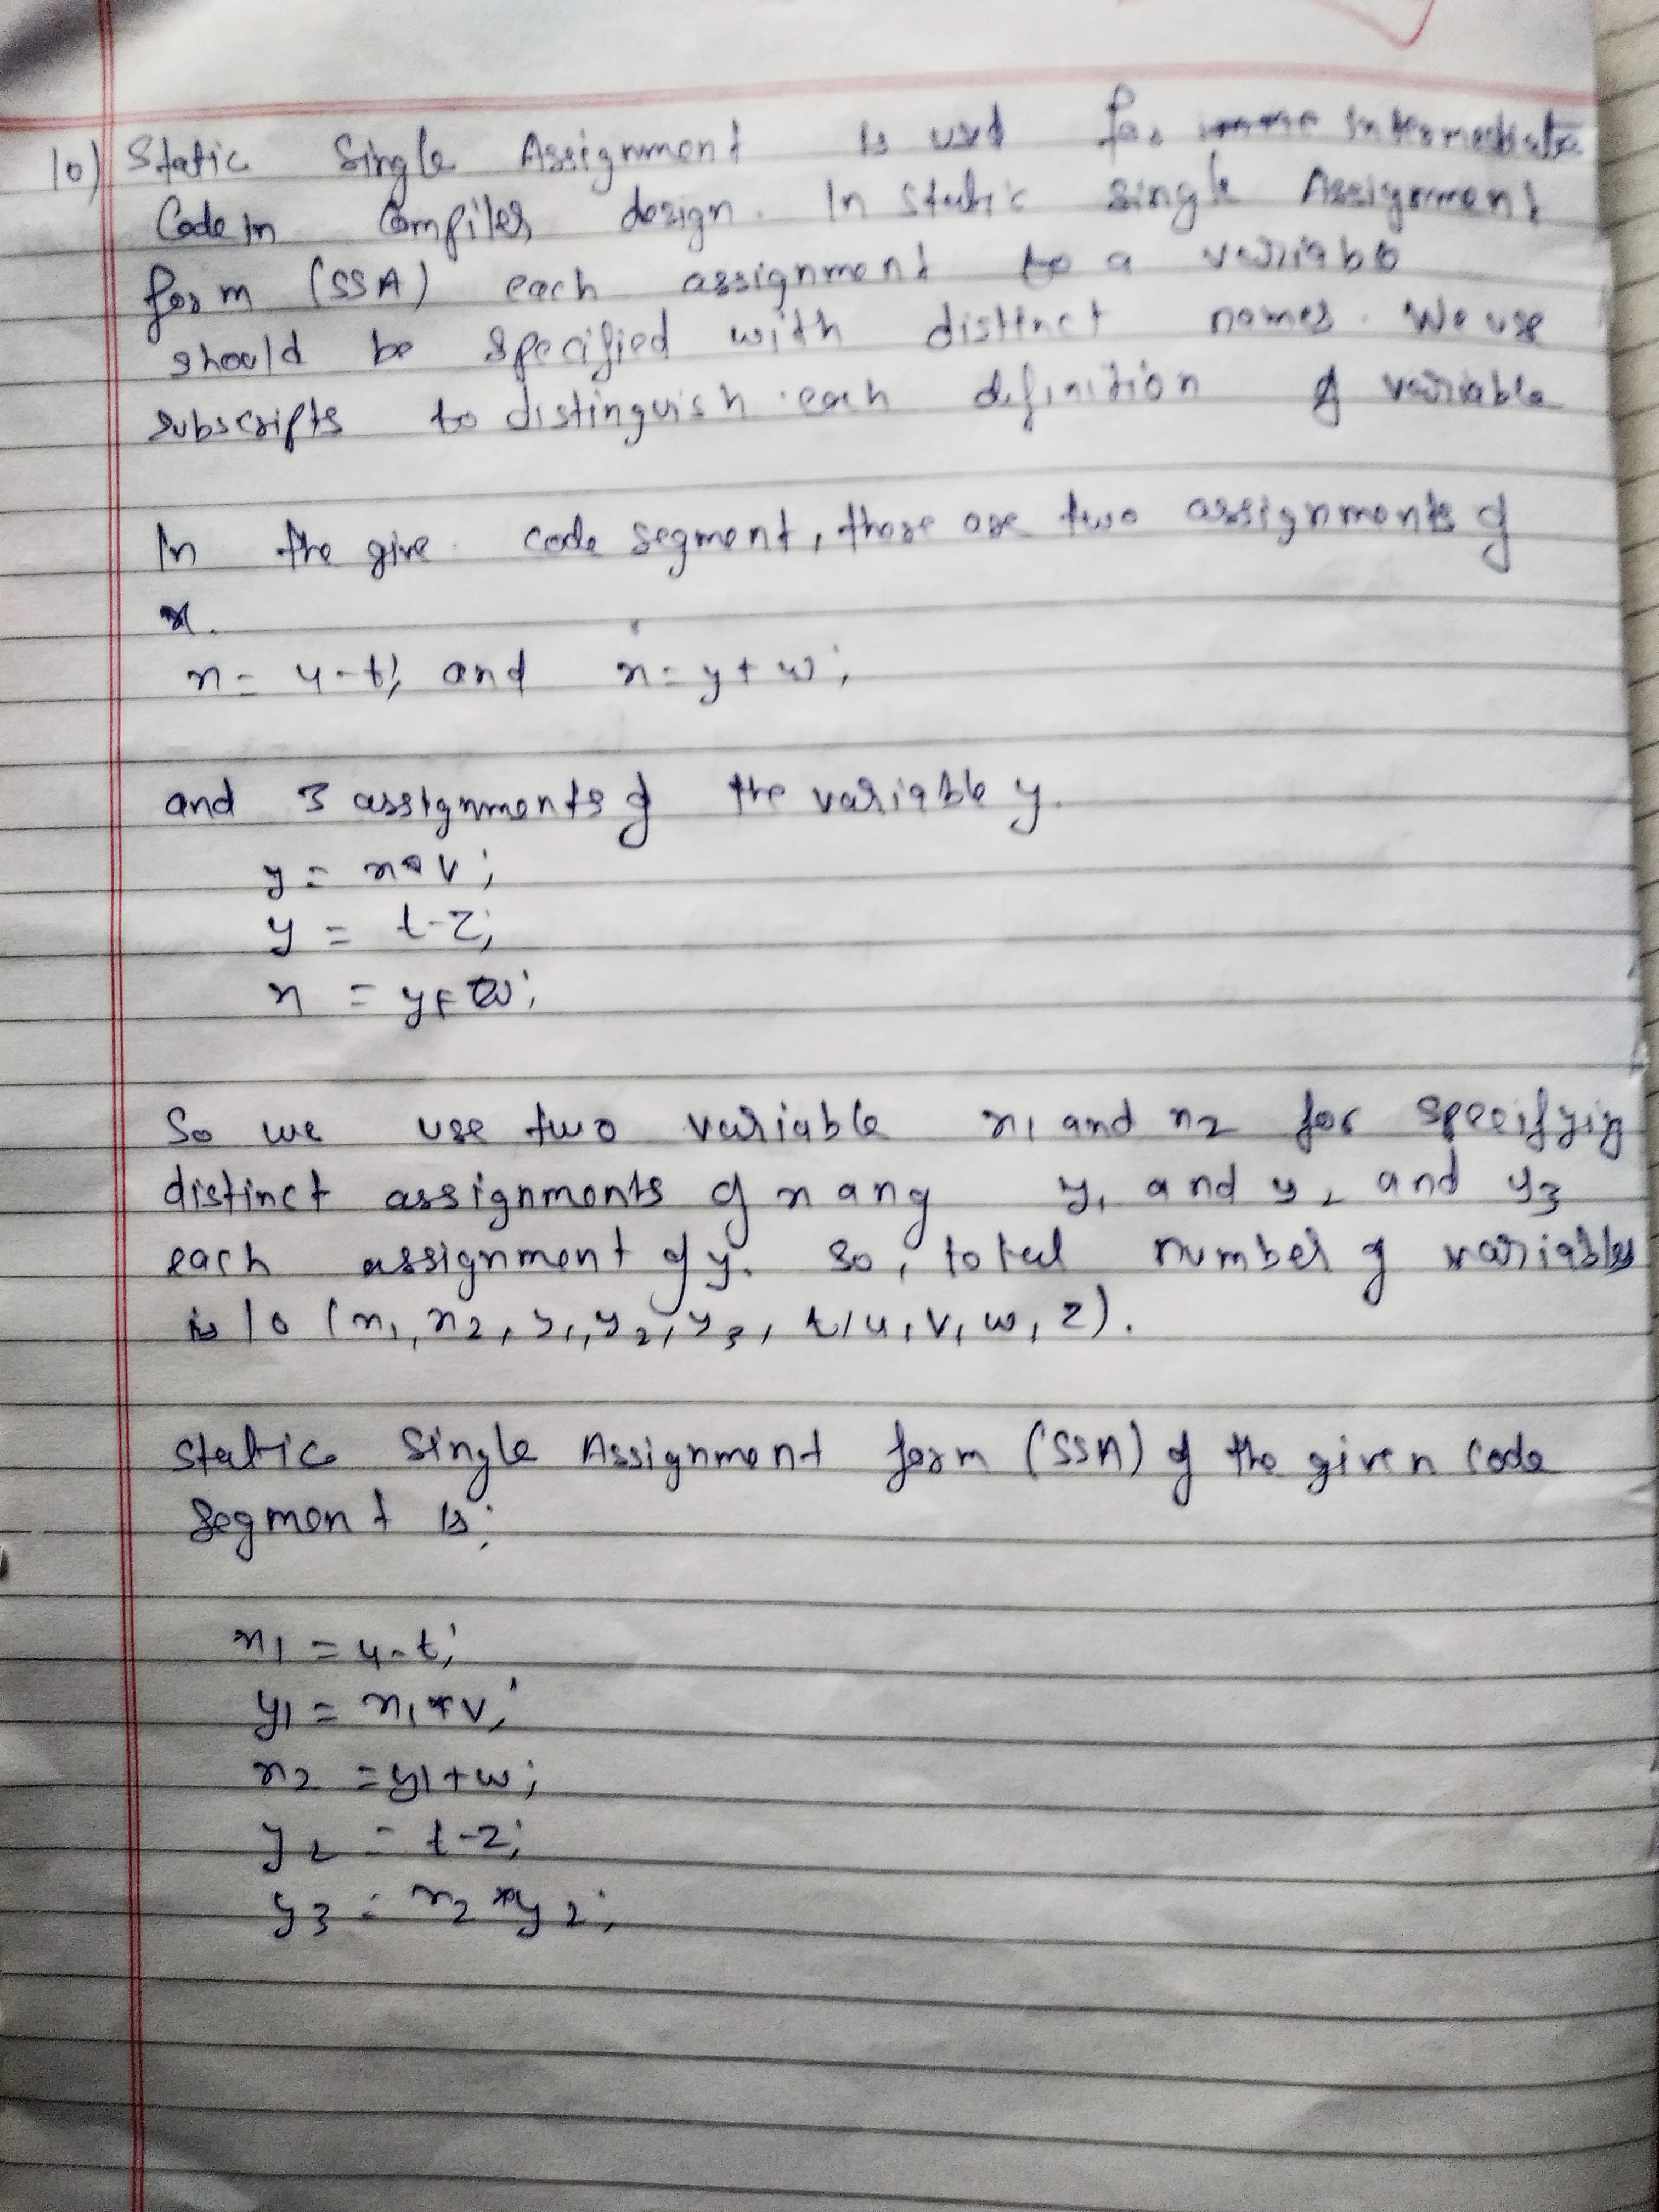 10) Static Single Assignment is used for Intermediate
Code in Compiler design. In Static single Assignment
form (SSA) each assignment to a variable
should be specified with distinct names. We use
subscripts to distinguish each definition of variable
In the give. code segment, there are two assignments of
x.
x = u-t; and x = y + w;
and 3 assignments of the variable y.
y = x*v;
y = t-z;
x = y+w;
So we use two variable x1 and x2 for specifying
distinct assignments of x ang y1 and y2 and y3
each assignment of y. So, total number of variables
is 10 (x1, x2, y1, y2, y3, t, u, v, w, z).
Static Single Assignment form (SSA) of the given code
segment is:
x1 = u-t;
y1 = x1*v;
x2 = y1+w;
y2 = t-z;
y3 = x2*y2;